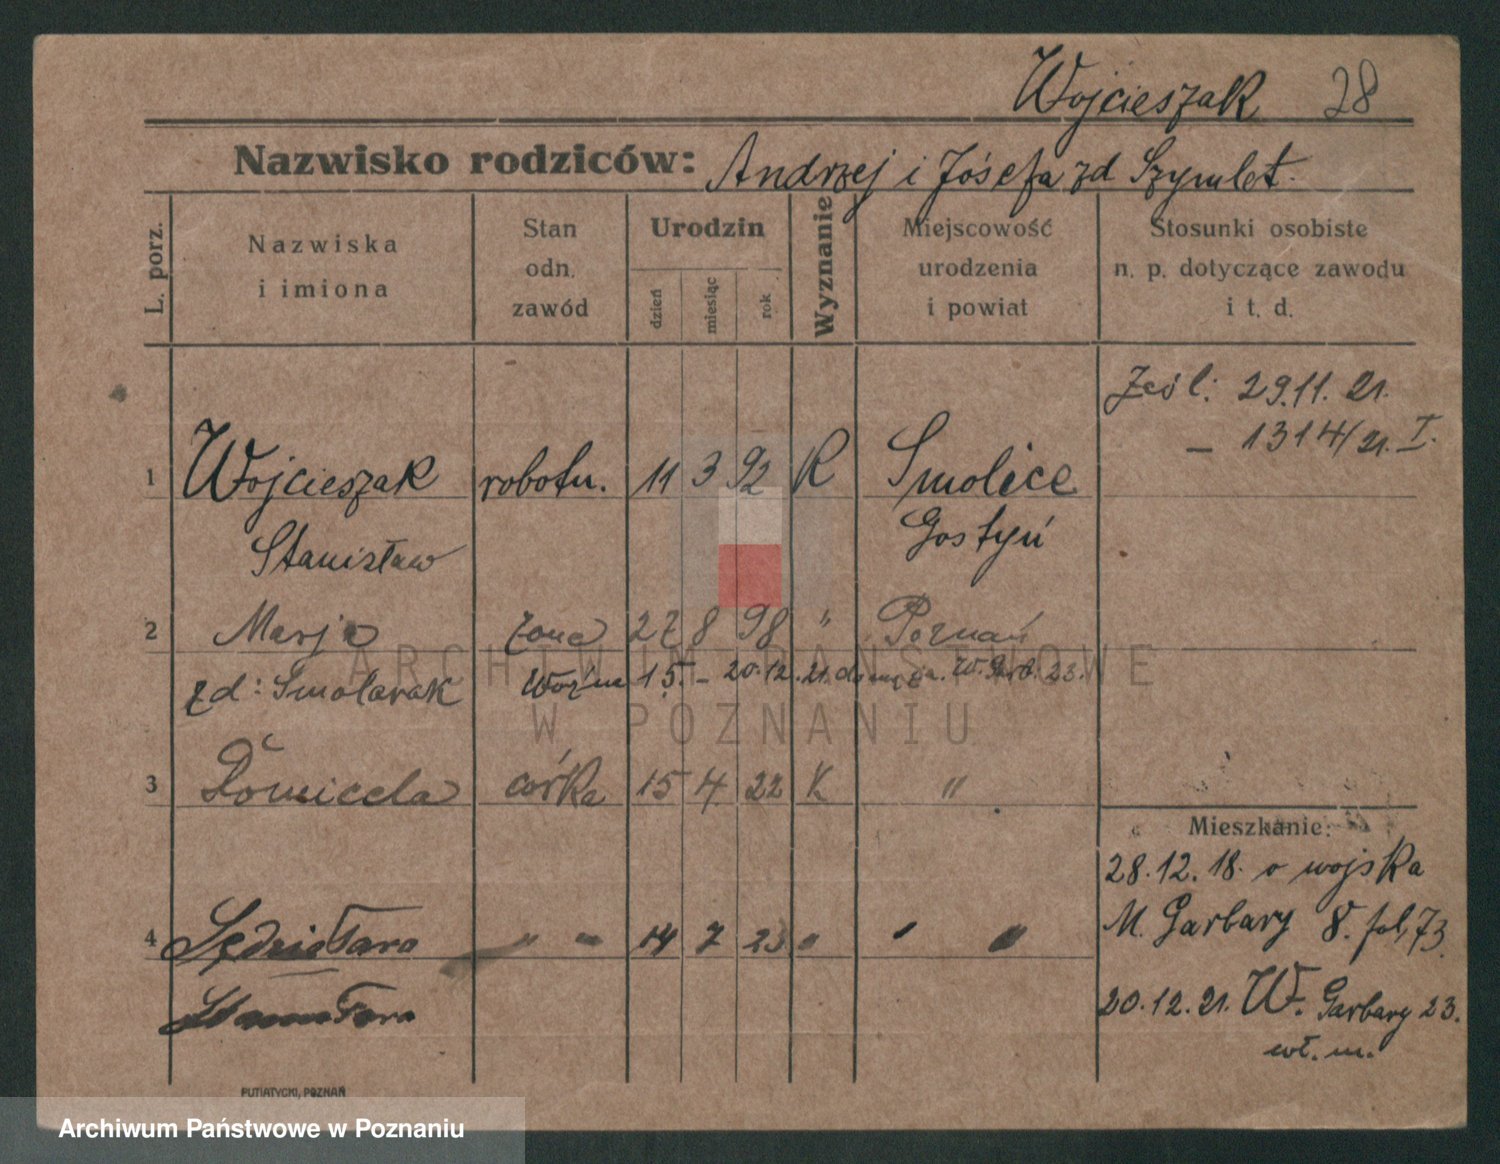 Wojcieszak 28
Nazwisko rodziców: Andrzej i Józefa zd Szymlet.
L. porz.
Nazwiska i imiona
Stan odn. zawód
Urodzin
dzień miesiąc rok
Wyznanie
Miejscowość urodzenia i powiat
Stosunki osobiste n. p. dotyczące zawodu i t. d.
29.11.21.
– 1314/21. I.
1 Wojcieszak robotn. 11 3 92 K Smolice
Stanisław Gostyń
2 Marja żona 27 8 98 " Poznań
zd: Smolarak 15. – 20.12.21. do męża. W. Garb. 23.
ARCHIWUM PAŃSTWOWE
W POZNANIU
3 córka 15 4 22 K "
Mieszkanie:
28.12.18. o wojska
M. Garbary 8. fol, 73
4 " " 14 7 23 " " "
20.12.21. W. Garbary 23.
wł. m.
PUTIATYCKI, POZNAŃ
Archiwum Państwowe w Poznaniu